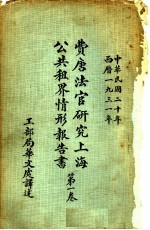 中華民國二十年
西曆一九三一年
費唐法官研究上海
公共租界情形報告書
第一卷
工部局華文處譯述